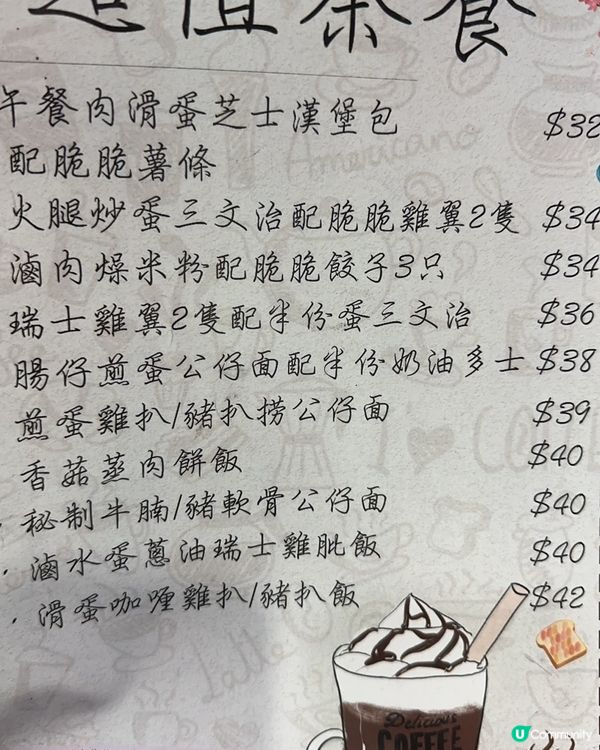 超值茶餐
午餐肉滑蛋芝士漢堡包 $32
配脆脆薯條
火腿炒蛋三文治配脆脆雞翼2隻 $34
滷肉燥米粉配脆脆餃子3只 $34
瑞士雞翼2隻配半份蛋三文治 $36
腸仔煎蛋公仔面配半份奶油多士 $38
煎蛋雞扒/豬扒撈公仔面 $39
香菇蒸肉餅飯 $40
秘制牛腩/豬軟骨公仔面 $40
滷水蛋蔥油瑞士雞肶飯 $40
滑蛋咖喱雞扒/豬扒飯 $42
Americano
Latte
Delicious
COFFEE
U Community